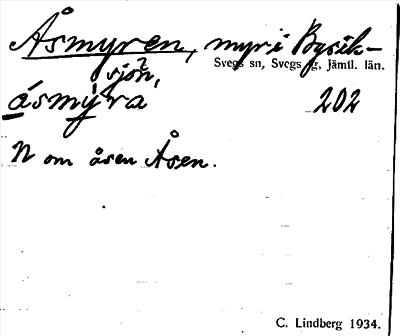 Åsmyren, myr i Bysik-
sjön,
Svegs sn, Svegs tg, Jämtl. län.
åsmy̆ra 202
N om åsen Åsen.
C. Lindberg 1934.